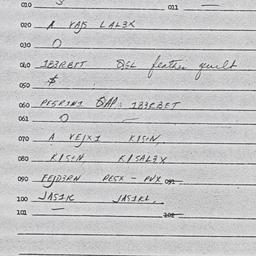 010 011
020 A VAJS LALEX
030 O
040 1B3RBET QSL feather quilt
050 $
060 PESR1N1 QAP: 1B3RBET
061 O
070 A VEJX1 K1S+N,
080 K1S+N, K1SALEX
090 FEJD3RN PESX - PVX 091
100 JAS1K JAS1KL,
101 102